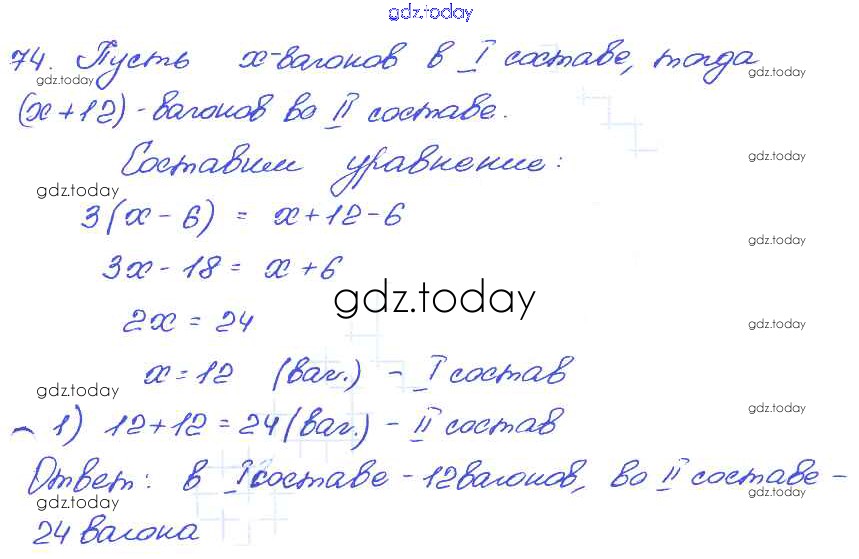 gdz.today
74. Пусть х-вагонов в I составе, тогда
gdz.today
gdz.today
(х+12)-вагонов во II составе.
Составим уравнение:
gdz.today
gdz.today
3(х-6) = х+12-6
gdz.today
3х-18 = х+6
gdz.today
2х = 24
gdz.today
х=12 (ваг.) - I состав
gdz.today
gdz.today
1) 12+12=24(ваг.)-II состав
Ответ: в I составе-12вагонов, во II составе-
gdz.today
gdz.today
24 вагона